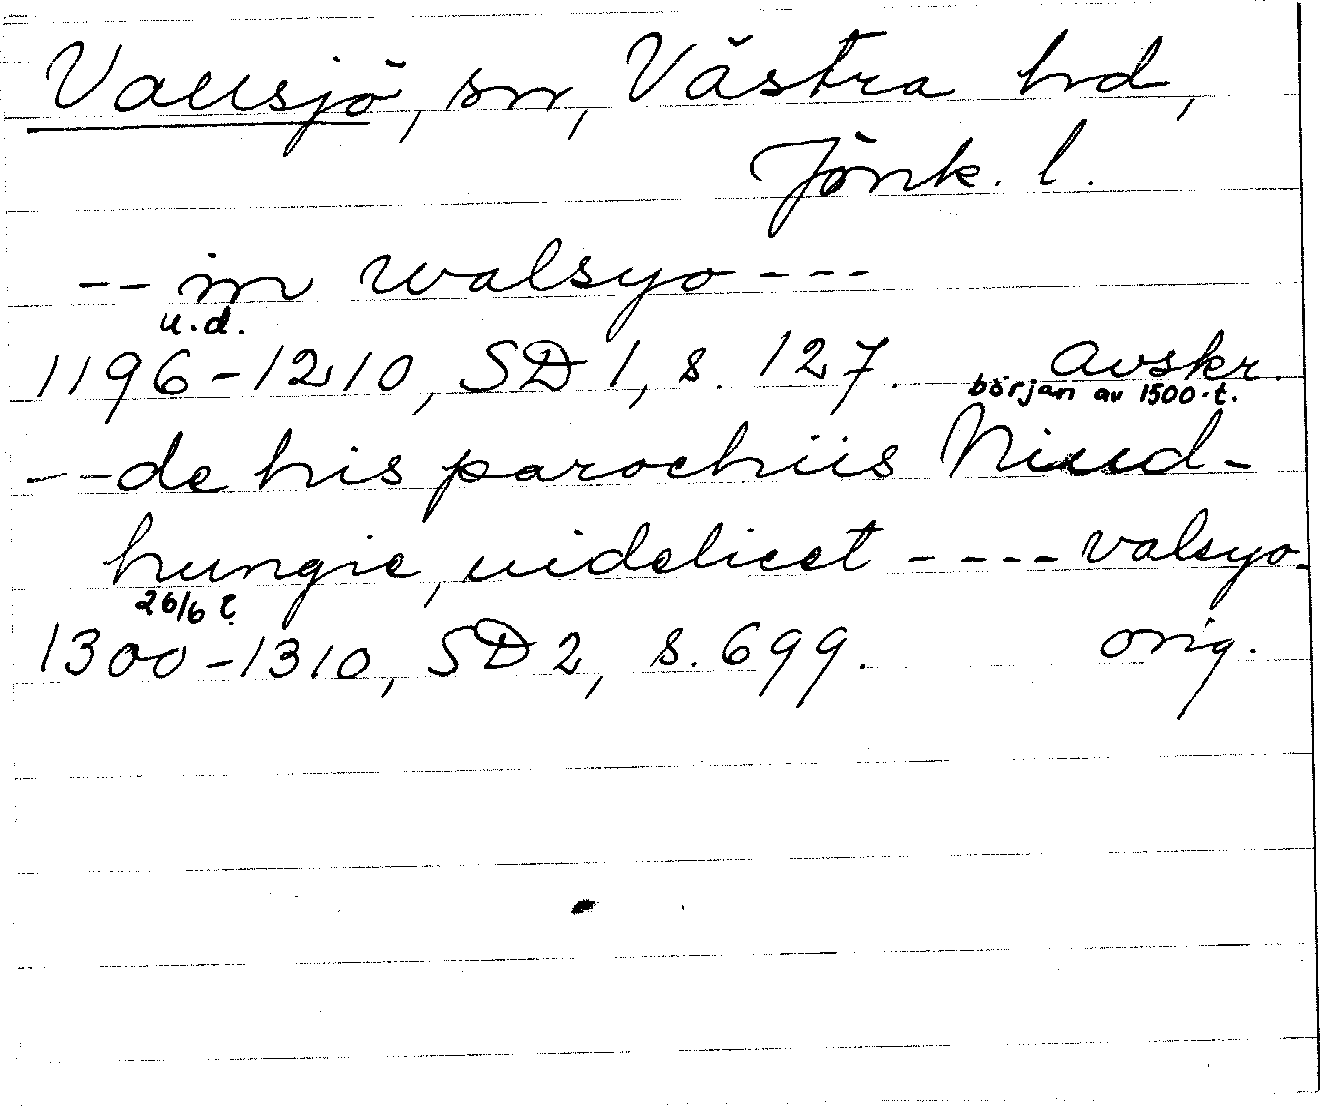 Vallsjö, sn, Västra hd,
Jönk. l.
-- in walsyo ---
u.d.
1196-1210, SD 1, s. 127. avskr.
början av 1500-t.
-- de his parochiis Niud-
hungie, uidelicet ---- valsyo-
26/6 ?
1300-1310, SD 2, s. 699. orig.